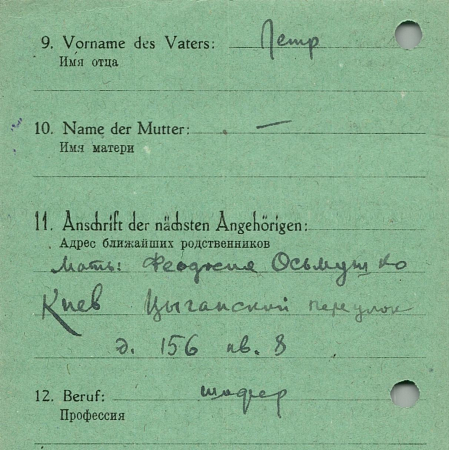 9. Vorname des Vaters: Петр
Имя отца
10. Name der Mutter: —
Имя матери
11. Anschrift der nächsten Angehörigen:
Адрес ближайших родственников
Мать: Феодосия Осьмушко
Киев Цыганской переулок
д. 156 кв. 8
12. Beruf: шофер
Профессия